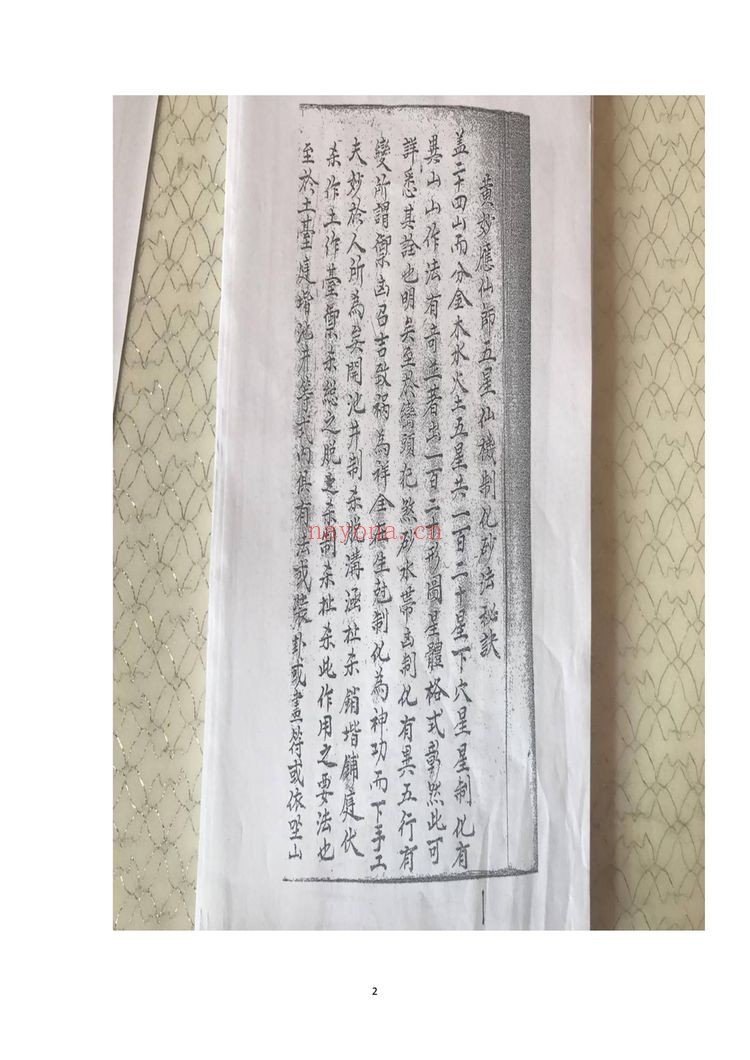 黃妙應仙師五星仙機制化砂法秘訣
盖二十四山而分金木水火土五星共一百二十星下穴星星制化有
異山山作法有奇立著出一百二十形圖星體格式彰然此可
詳悉其詮也明矣至於巒頭犯煞砂水帶凶制化有異五行有
變所謂禦凶召吉致禍為祥全生尅制化為神功而下手工
夫妙於人所為矣開池井制杀溝涵杀銷堦鋪庭伏
杀作土作臺禀杀總之脫杀制杀杀此作用之要法也
至於土臺庭堦池井等式內俱有法或裝卦或畫符或依坐山
nayona.cn
2